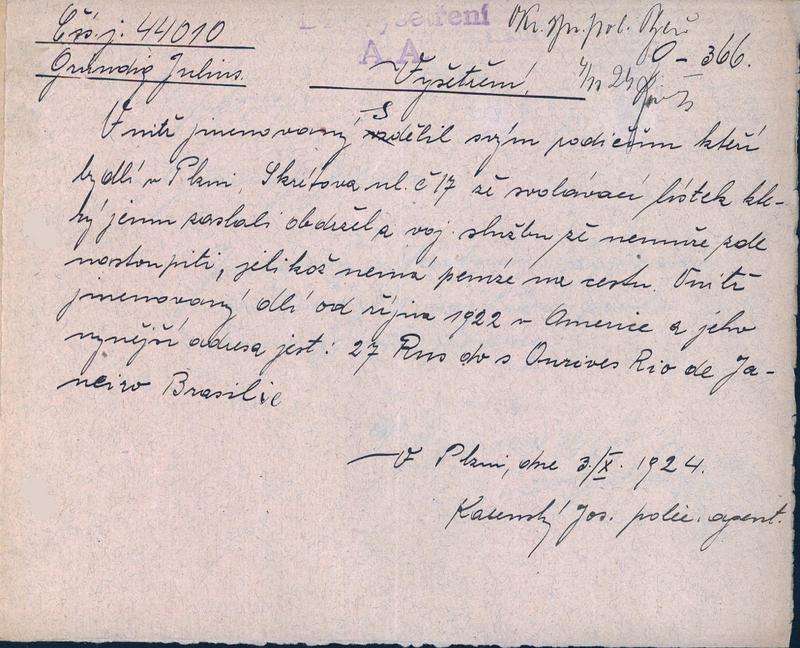 Čís. j. 44010
Grundig Julius.
vyšetření
A A
Okr. spr. pol.
0 - 366.
Vyšetření.
Vnitř jmenovaný sdělil svým rodičům kteří
bydlí v Plzni, Skrétova ul. č 17 že svolávací lístek kte-
rý jemu zaslali obdržel a voj. službu že nemůže zde
nastoupiti, jelikož nemá peníze na cestu. Vnitř
jmenovaný dlí od října 1922 v Americe a jeho
nynější adresa jest: 27 Rus do s Ourives Rio de Ja-
neiro Brasilie
V Plzni, dne 3./X. 1924.
Jos. polic. agent.